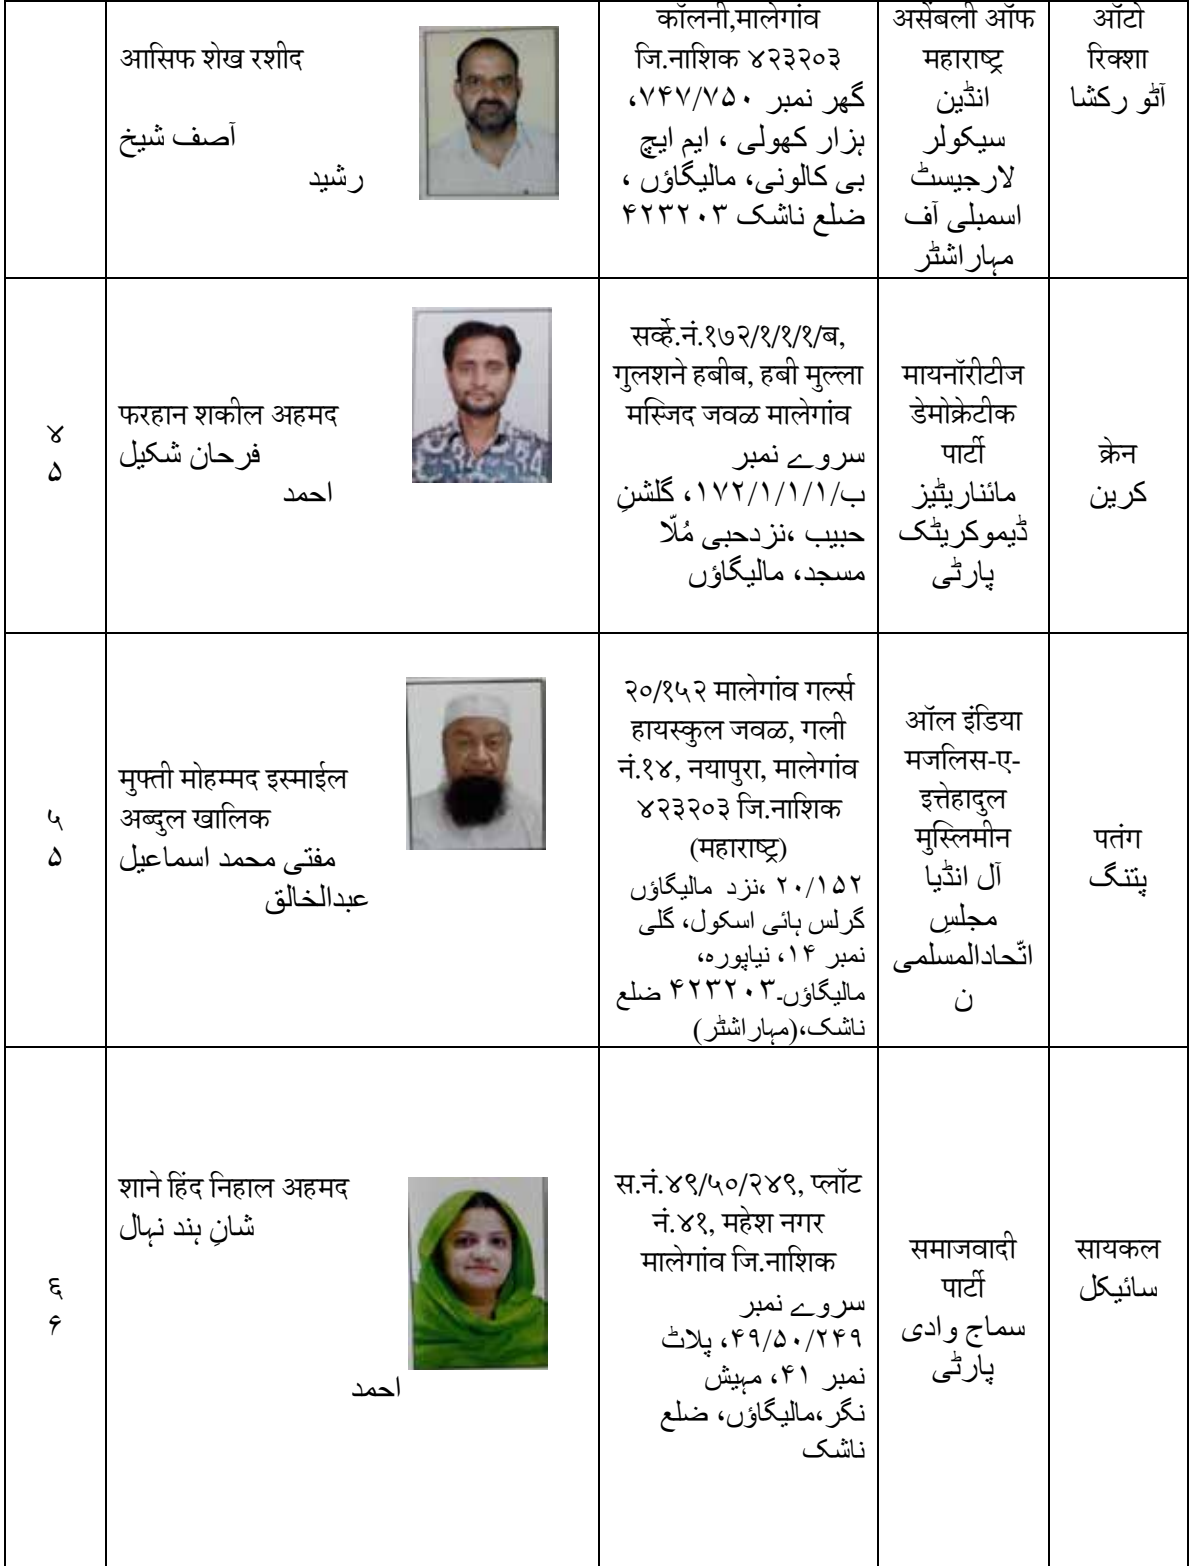 आसिफ शेख रशीद
آصف شیخ
رشید
कॉलनी,मालेगांव
जि.नाशिक ४२३२०३
گھر نمبر ۷۴۷/۷۵۰،
ہزار کھولی ، ایم ایچ
بی کالونی، مالیگاؤں ،
ضلع ناشک ۴۲۳۲۰۳
असेंबली ऑफ
महाराष्ट्र
انڈین
سیکولر
لارجیسٹ
اسمبلی آف
مہاراشٹر
ऑटो
रिक्शा
آٹو رکشا
४
۵
फरहान शकील अहमद
فرحان شکیل
احمد
सर्व्हे.नं.१७२/१/१/१/ब,
गुलशने हबीब, हबी मुल्ला
मस्जिद जवळ मालेगांव
سروے نمبر
ب/۱۷۲/۱/۱/۱، گلشنِ
حبیب ،نزدحبی مُلّا
مسجد، مالیگاؤں
मायनॉरीटीज
डेमोक्रेटीक
पार्टी
مائناریٹیز
ڈیموکریٹک
پارٹی
क्रेन
کرین
५
۵
मुफ्ती मोहम्मद इस्माईल
अब्दुल खालिक
مفتی محمد اسماعیل
عبدالخالق
२०/१५२ मालेगांव गर्ल्स
हायस्कुल जवळ, गली
नं.१४, नयापुरा, मालेगांव
४२३२०३ जि.नाशिक
(महाराष्ट्र)
۲۰/۱۵۲ ،نزد مالیگاؤں
گرلس ہائی اسکول، گلی
نمبر ۱۴، نیاپورہ،
مالیگاؤں۔۴۲۳۲۰۳ ضلع
ناشک،(مہاراشٹر)
ऑल इंडिया
मजलिस-ए-
इत्तेहादुल
मुस्लिमीन
آل انڈیا
مجلسِ
اتّحادالمسلمی
ن
पतंग
پتنگ
६
۶
शाने हिंद निहाल अहमद
شانِ ہند نہال
احمد
स.नं.४९/५०/२४९, प्लॉट
नं.४१, महेश नगर
मालेगांव जि.नाशिक
سروے نمبر
۴۹/۵۰/۲۴۹، پلاٹ
نمبر ۴۱، مہیش
نگر،مالیگاؤں، ضلع
ناشک
समाजवादी
पार्टी
سماج وادی
پارٹی
सायकल
سائیکل